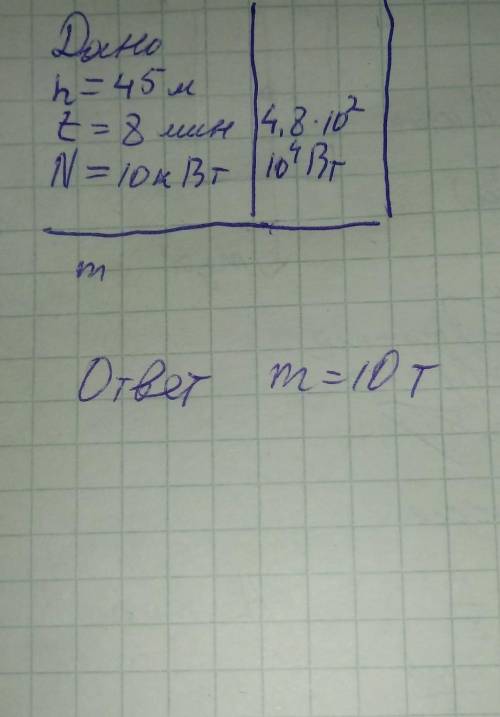 Дано
h = 45 м
t = 8 мин 4,8·10²
N = 10 кВт 10⁴ Вт
m
Ответ m = 10 т